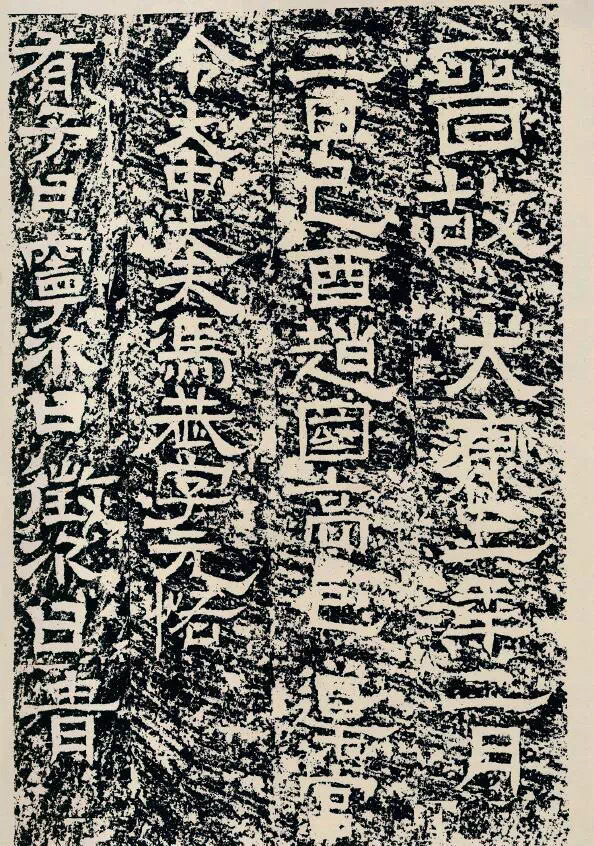 晉故大康三年二月
三日己酉趙國高邑導官
令大中大夫馮恭字元恪
有子曰寧次曰徵次曰胄